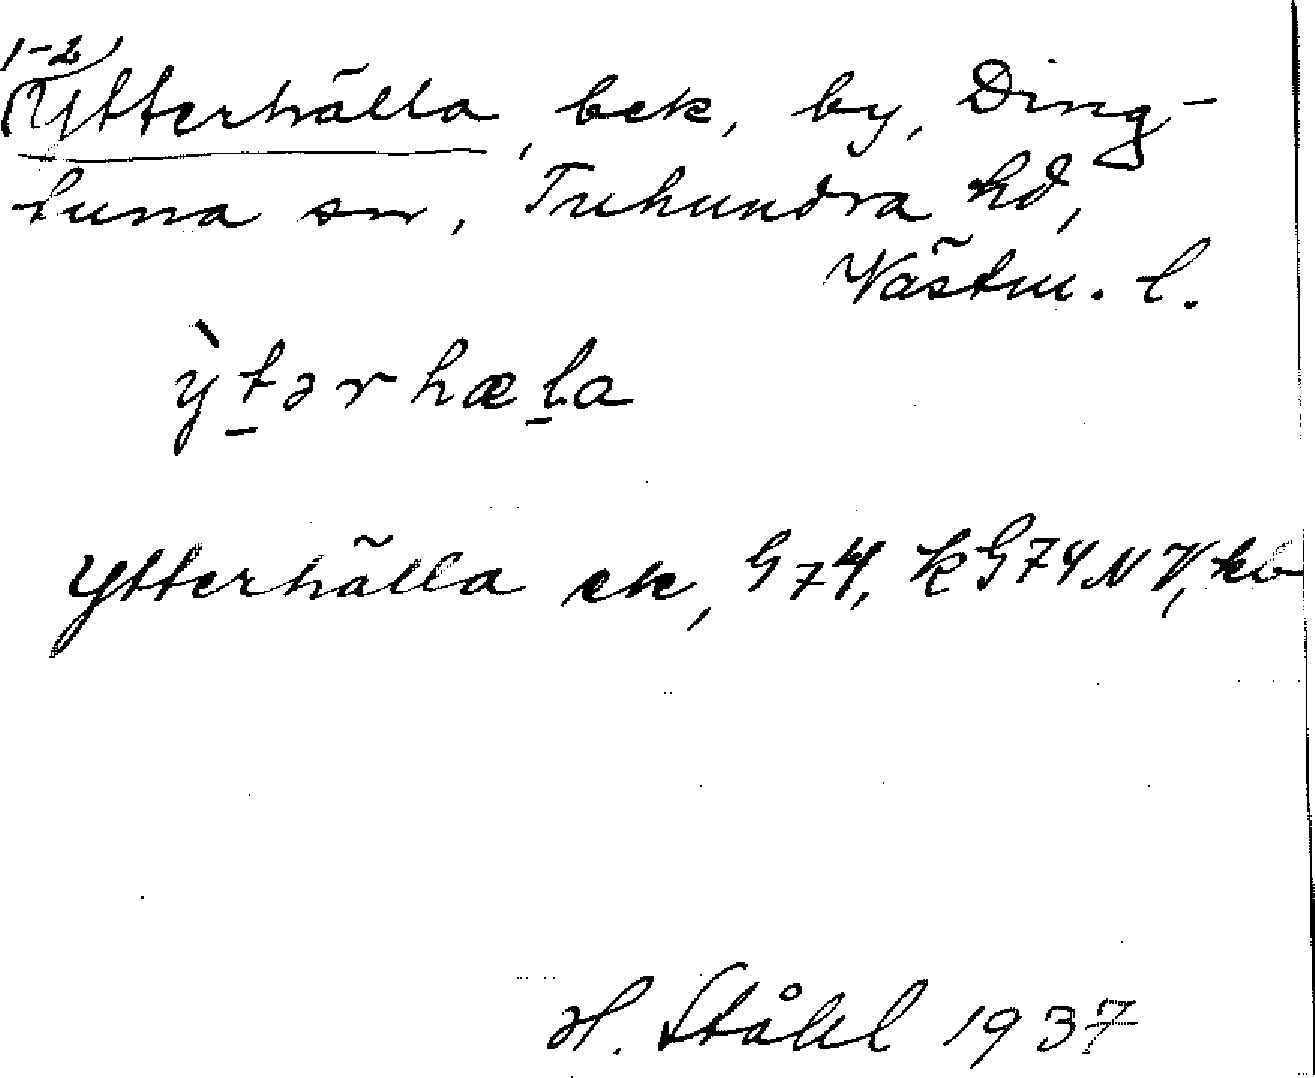 1-2)
Ytterhälla, bek, by, Ding-
tuna sn, Tuhundra hd,
Västm. l.
ỳt̠ərhæl̠a
Ytterhälla ek, G74, kG74NV, kb
H. Ståhl 1937